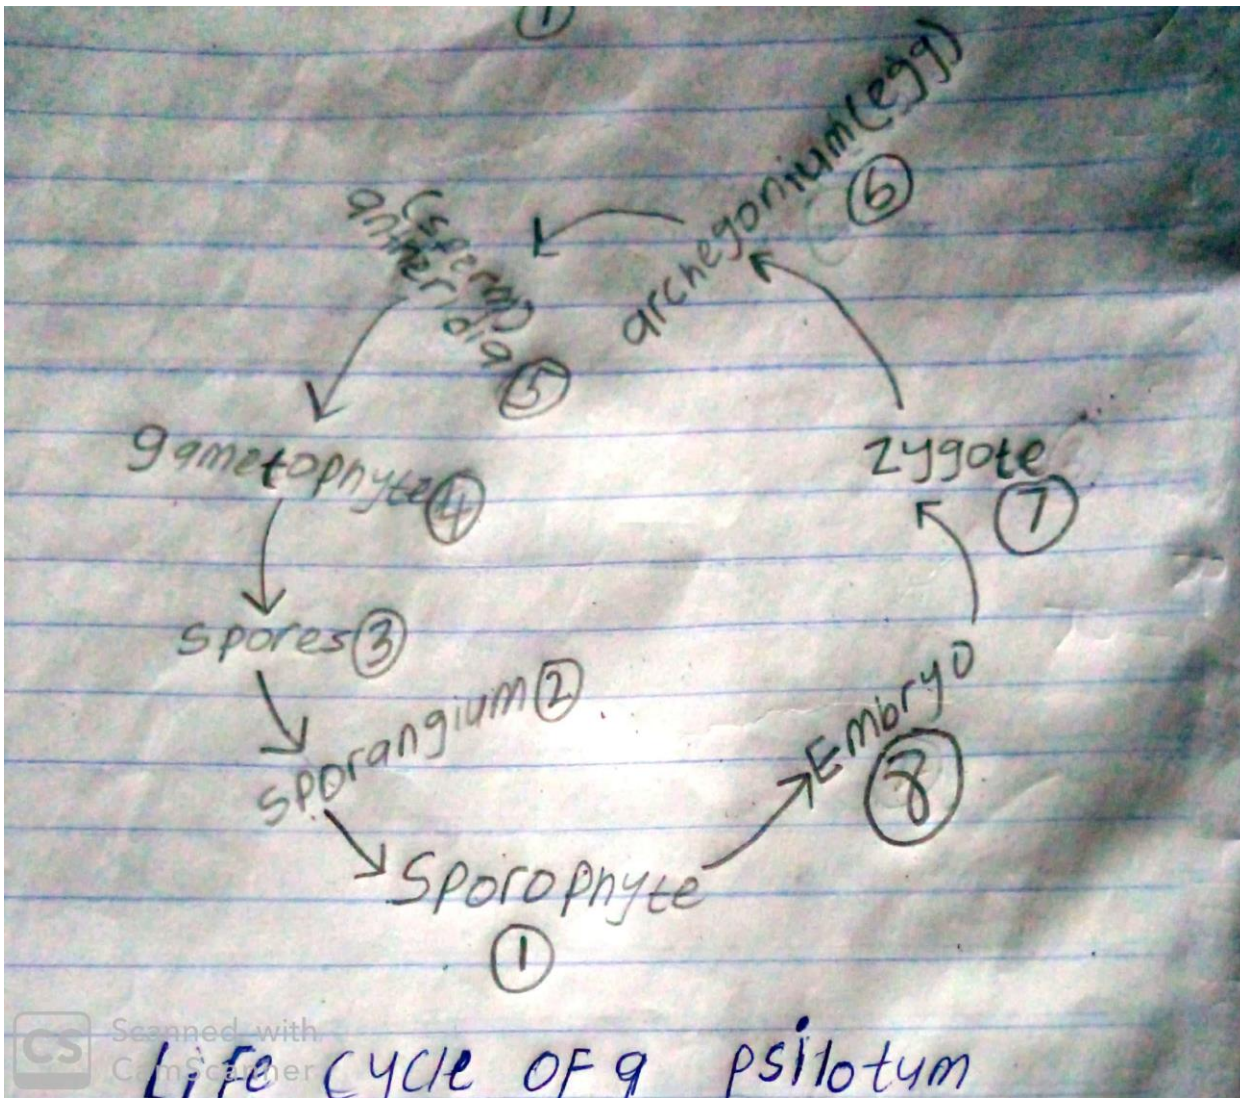 1
archegonium(egg)
6
(sperm)
antheridia
5
gametophyte 4
zygote
7
spores 3
sporangium 2
Embryo
8
Sporophyte
1
CS Scanned with
CamScanner
Life cycle of a psilotum